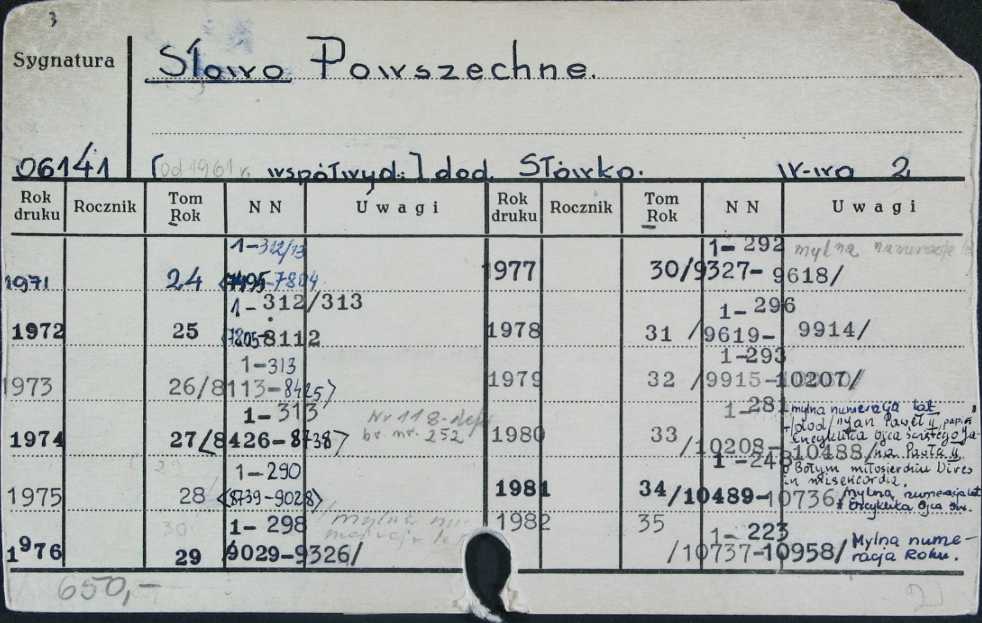 3
Sygnatura
Słowo Powszechne.
06141 [od 1961 r. współwyd.:] dod. Słówko. W-wa 2
Rok druku Rocznik Tom Rok NN Uwagi Rok druku Rocznik Tom Rok NN Uwagi
1-312/13
1971 24 <7495-7804
1-312/313
1972 25 <7805-8112
1-313
1973 26/8113-8425>
1-313 Nr 118-
1974 27/8426-8738> br. nr. 252/
1-290
1975 28/ <8739-9028>
1-298 mylna
1976 29 /9029-9326/
1-292 mylna numeracja
1977 30/9327-9618/
1-296
1978 31 /9619- 9914/
1-293
1979 32 /9915-10207/
1-281 mylna numeracja lat
1980 33 /10208-10488/
+/dod/ "Jan Paweł II papież
encyklika ojca świętego Ja-
na Pawła II
o Bożym miłosierdziu Dives
in misericordia.
1-248
1981 34/10489-10736, mylna numeracja lat
+ encyklika ojca św.
1-223
1982 35 /10737-10958/ Mylna nume-
racja Roku.
650,-
2